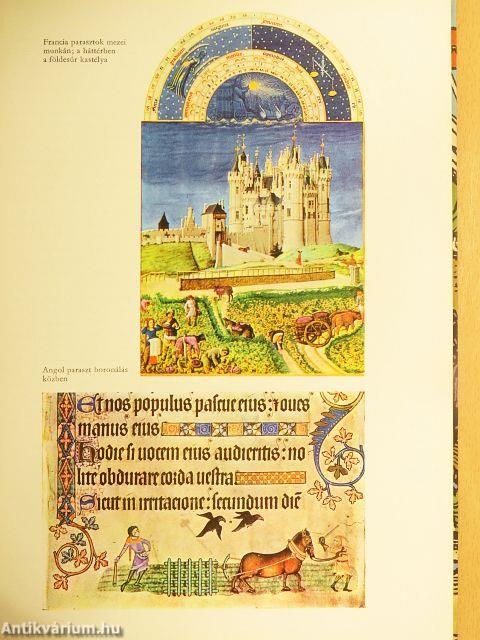 Francia parasztok mezei
munkán; a háttérben
a földesúr kastélya
Angol paraszt boronálás
közben
Et nos populus pascue eius: & oues
manus eius
Hodie si uocem eius audieritis: no
lite obdurare corda uestra
Sicut in irritacione: secundum diē
Antikvárium.hu